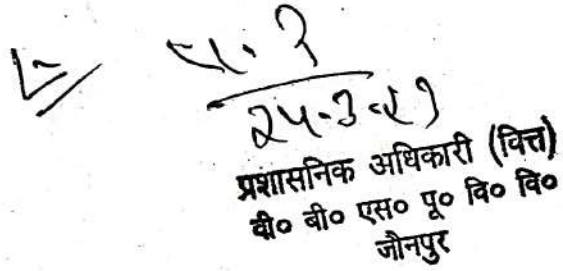 २५-३-२१
प्रशासनिक अधिकारी (वित्त)
वी० बी० एस० पू० वि० वि०
जौनपुर